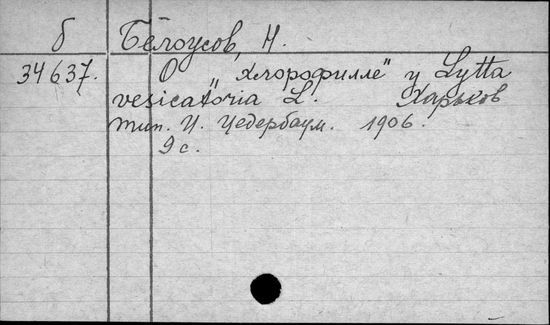 б Бѣлоусов, Н.
34637. О „хлорофилле" у Lytta
vesicatoria L. Харьков
тип. И. Цедербаум. 1906.
9 с.